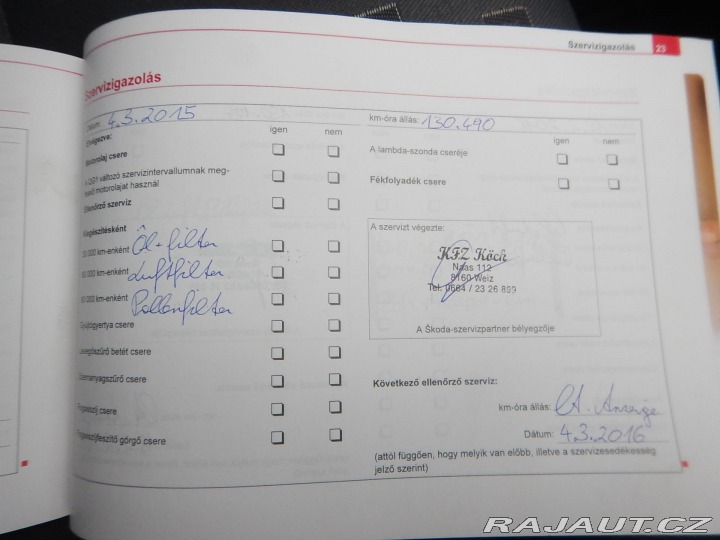 Szervizigazolás 23
Szervizigazolás
Dátum: 4.3.2015
Elvégezve:
igen nem
Motorolaj csere
A QG1 változó szervizintervallumnak meg-
felelő motorolajat használ
Ellenőrző szerviz
Kiegészítésként
30 000 km-enként Öl-filter
60 000 km-enként Luftfilter
60 000 km-enként Pollenfilter
Gyújtógyertya csere
Levegőszűrő betét csere
Üzemanyagszűrő csere
Fogasszíj csere
Fogasszíjfeszítő görgő csere
km-óra állás: 130.490
igen nem
A lambda-szonda cseréje
Fékfolyadék csere
A szervizt végezte:
KFZ Köck
Naas 112
8160 Weiz
Tel. 0664 / 23 26 899
A Škoda-szervizpartner bélyegzője
Következő ellenőrző szerviz:
km-óra állás: Lt. Anzeige
Dátum: 4.3.2016
(attól függően, hogy melyik van előbb, illetve a szervizesedékesség
jelző szerint)
RAJAUT.CZ